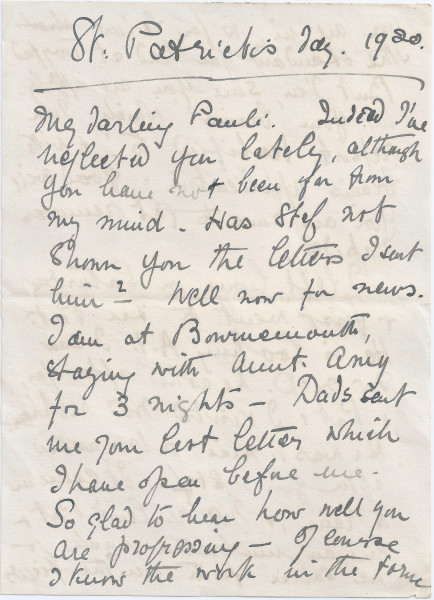 St. Patrick's Day. 1930.
My darling Pauli. Indeed I've
neglected you lately, although
you have not been far from
my mind - Has Stef not
shown you the letters I sent
him? - Well now for news.
I am at Bournemouth,
staying with Aunt Amy
for 3 nights - Dad sent
me your last letter which
I have open before me -
So glad to hear how well you
are progressing - Of course
I know the work in the